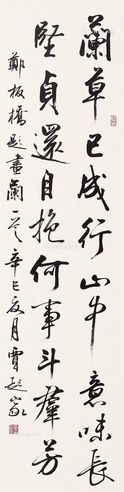 蘭草已成行山中意味長
堅貞還自抱何事斗群芳
鄭板橋題畫蘭一首辛巳夏月賈起家